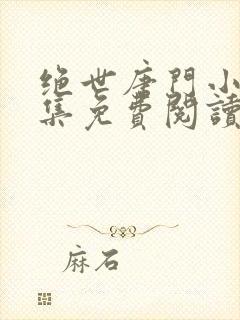 绝世唐门小
集免費閱讀
麻石